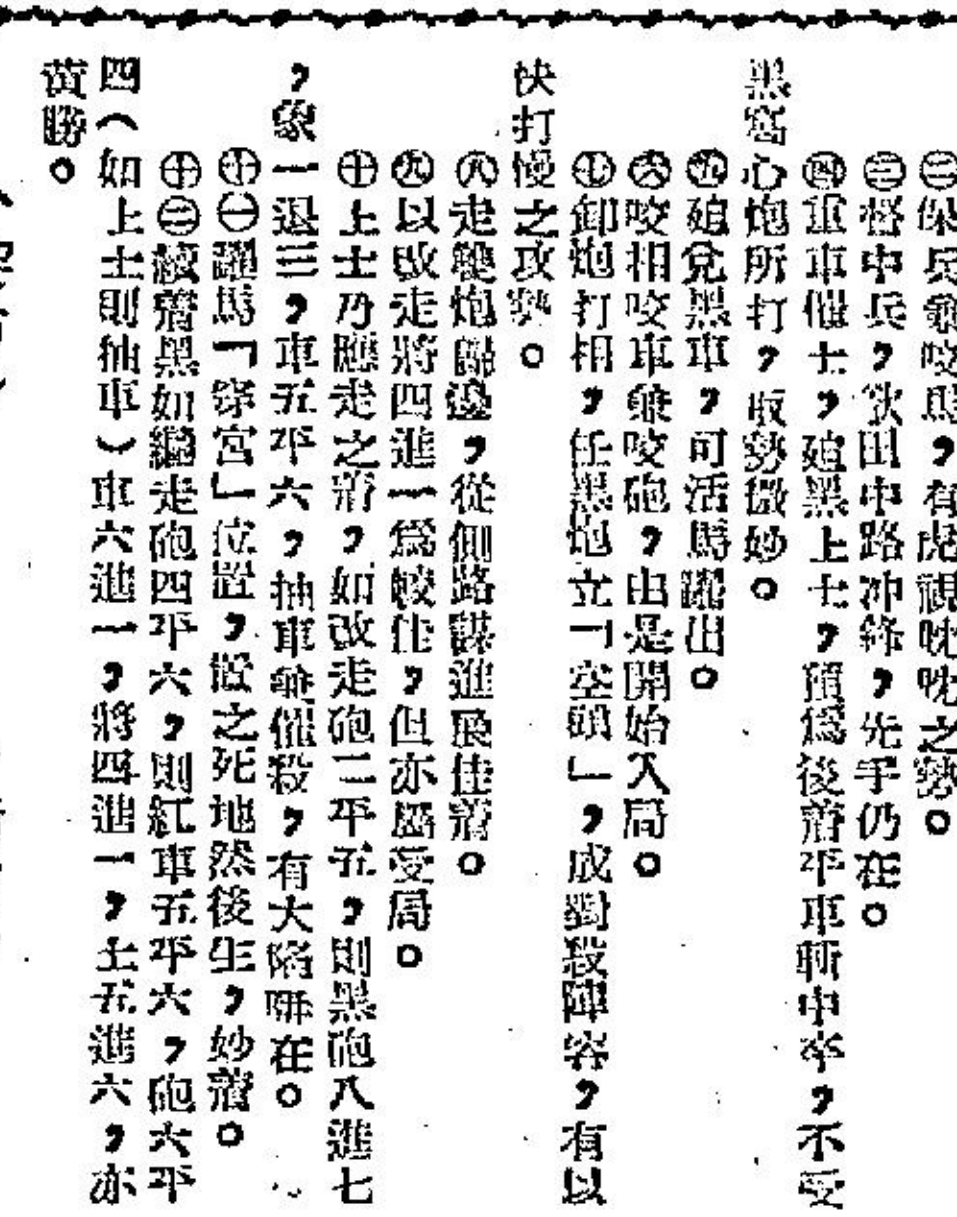 ㊁保兵兼咬馬，有虎視眈眈之勢。
㊂督中兵，欲由中路冲鋒，先手仍在。
㊃重車催士，逼黑上士，預爲後着平車斬中卒，不受
黑窩心炮所打，取勢微妙。
㊄逼兌黑車，可活馬躍出。
㊅咬相咬車兼咬砲，由是開始入局。
㊆卸炮打相，任黑炮立「空頭」，成對殺陣容，有以
快打慢之攻勢。
㊇走雙炮歸邊，從側路謀進展佳着。
㊈以改走將四進一爲較佳，但亦屬受局。
㊉上士乃應走之着，如改走砲二平五，則黑砲八進七
，象一退三，車五平六，抽車兼催殺，有大陷阱在。
㊉㊀躍馬「穿宮」位置，置之死地然後生，妙着。
㊉㊁續着黑如繼走砲四平六，則紅車五平六，砲六平
四（如上士則抽車）車六進一，將四進一，士五進六，亦
黃勝。